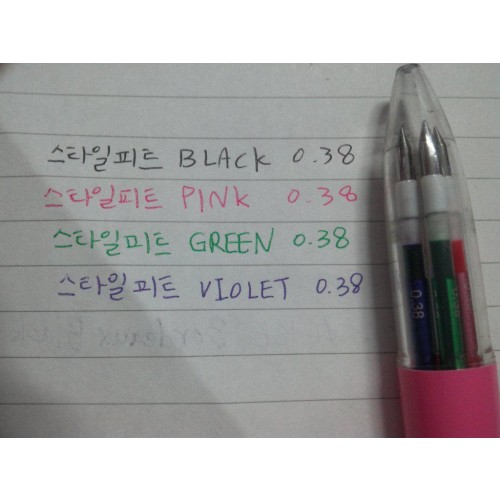 스타일피트 BLACK 0.38
스타일피트 PINK 0.38
스타일피트 GREEN 0.38
스타일피트 VIOLET 0.38
0.38